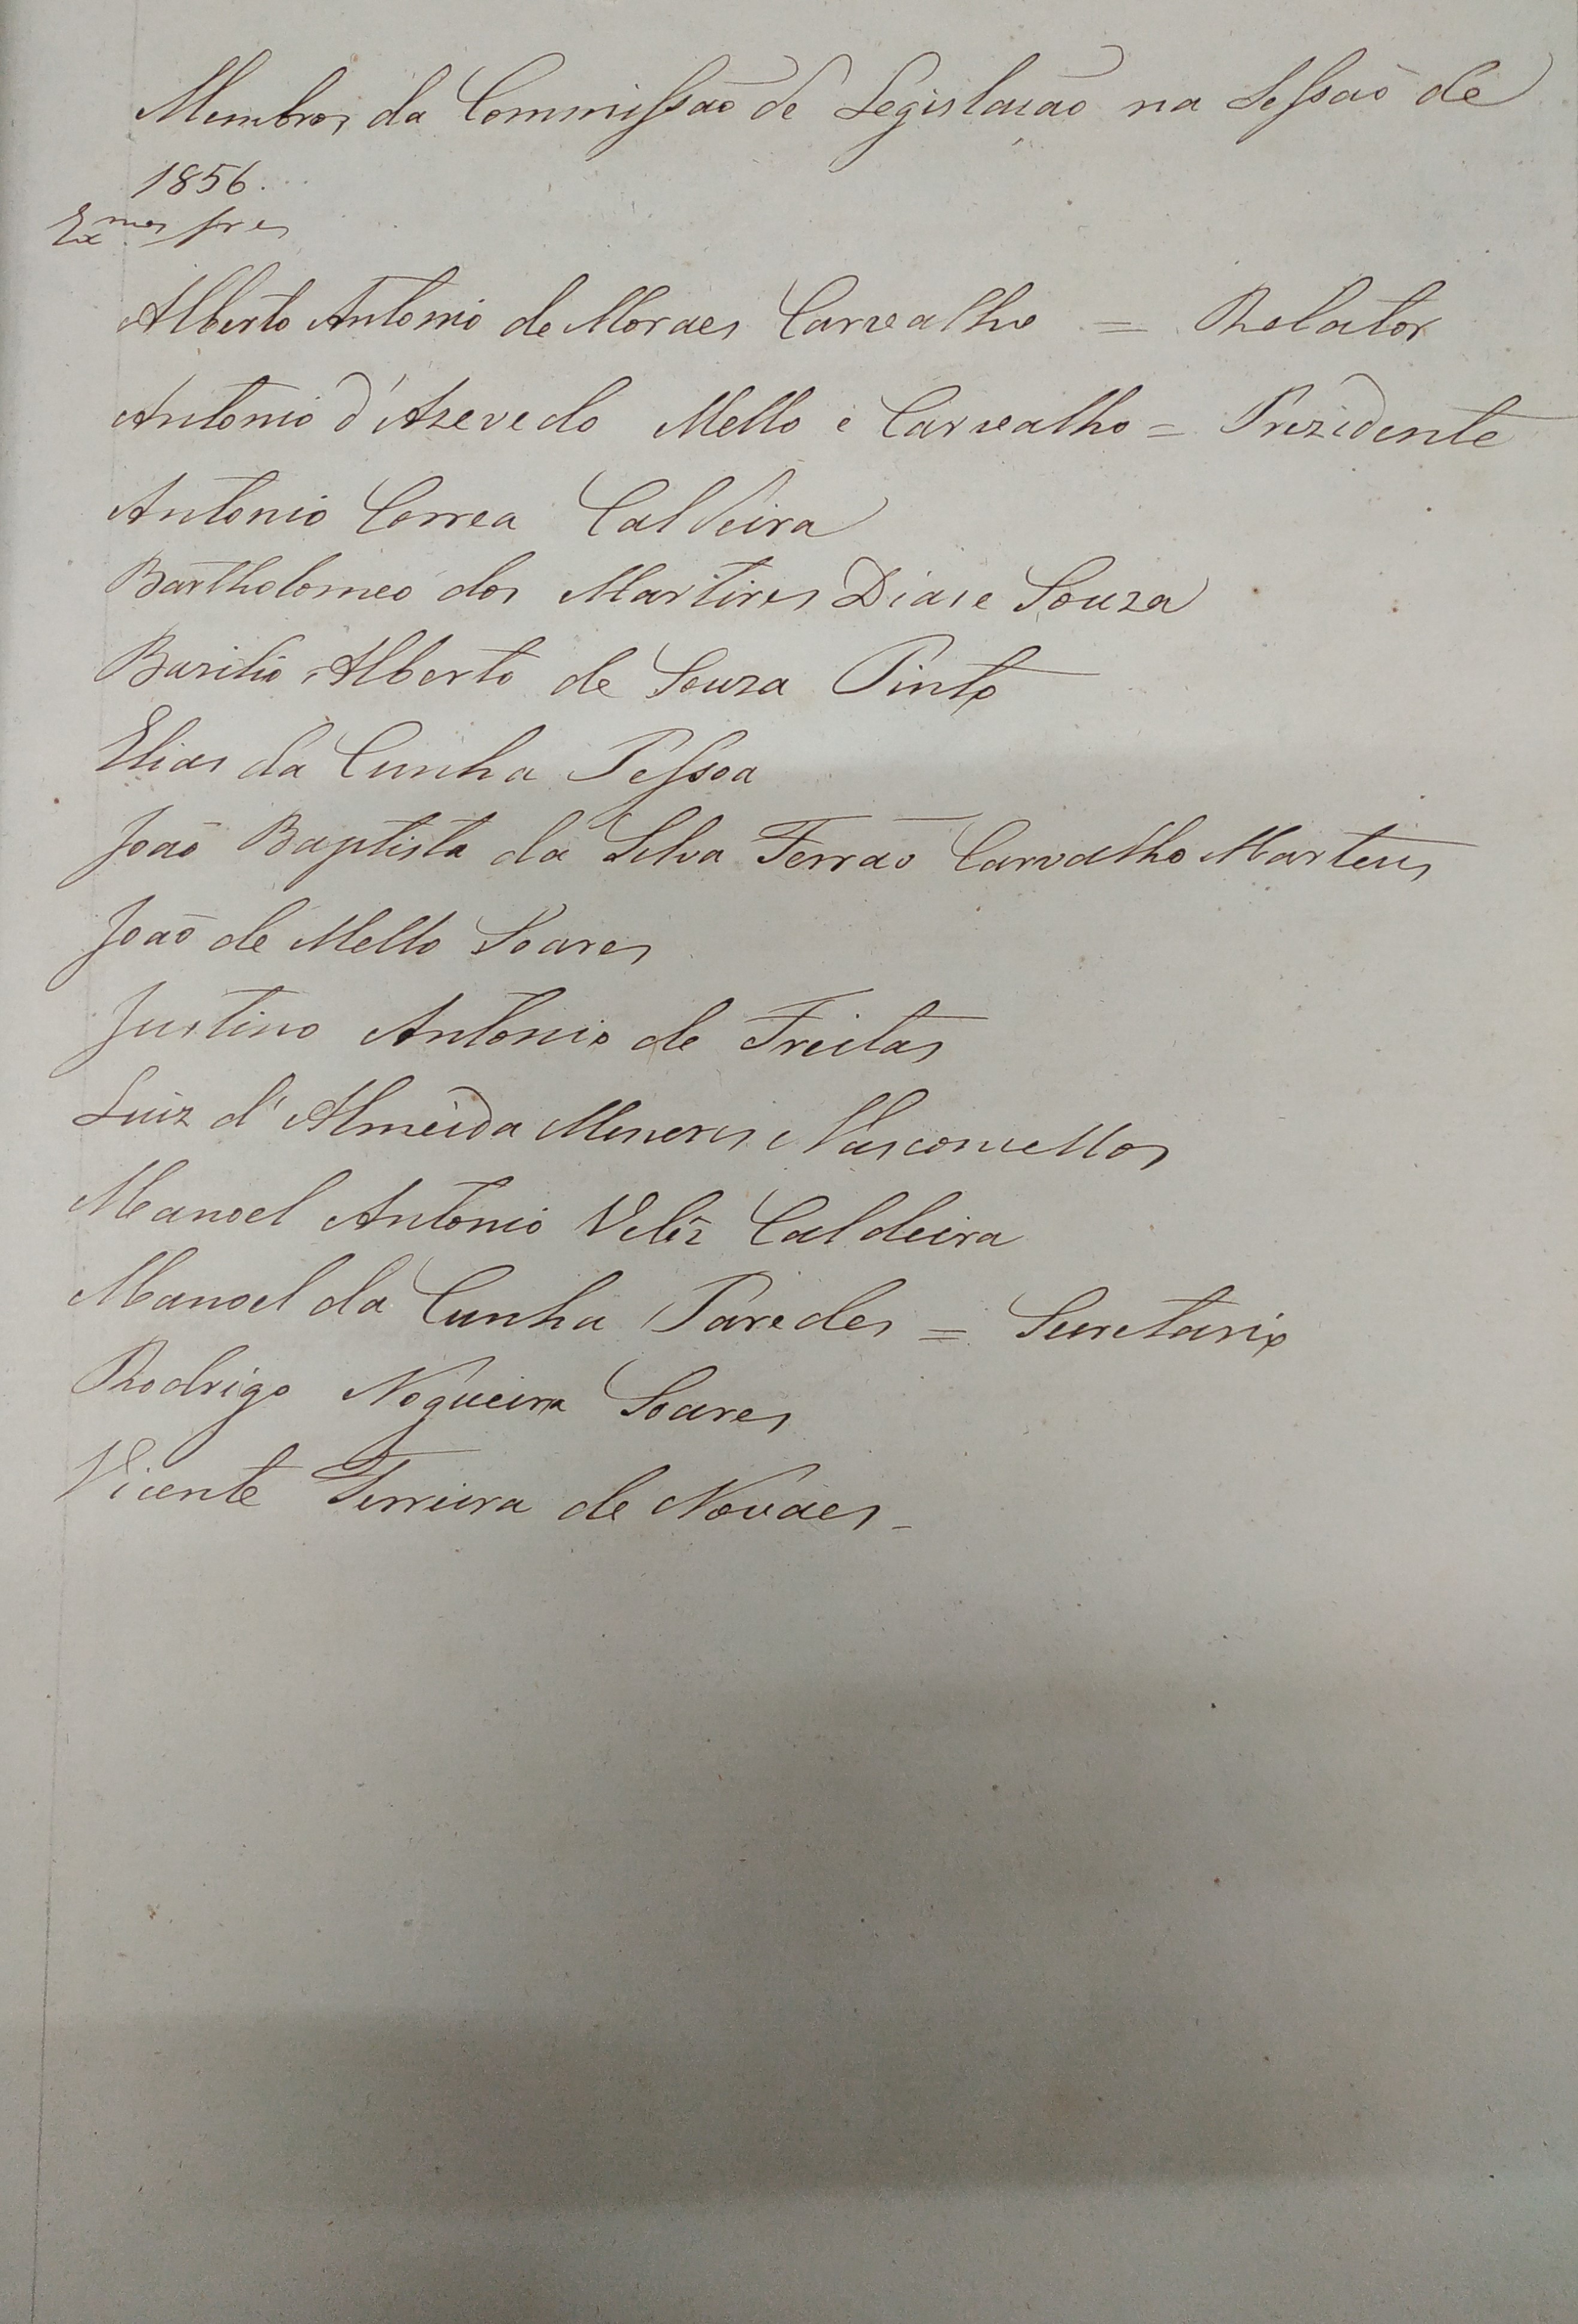 Membros da Commissão de Legislacão na Sessão de
1856.
Ex.mos Sres
Alberto Antonio de Moraes Carvalho = Relator
Antonio d'Azevedo Mello e Carvalho = Prezidente
Antonio Correa Caldeira
Bartholomeo dos Martires Dias e Souza
Bazilio Alberto de Souza Pinto
Elias da Cunha Pessoa
João Baptista da Silva Ferrão Carvalho Martens
João de Mello Soares
Justino Antonio de Freitas
Luiz d'Almeida Menezes Vasconcellos
Manoel Antonio Vellez Caldeira
Manoel da Cunha Paredes = Secretario
Rodrigo Nogueira Soares
Vicente Ferreira de Novaes